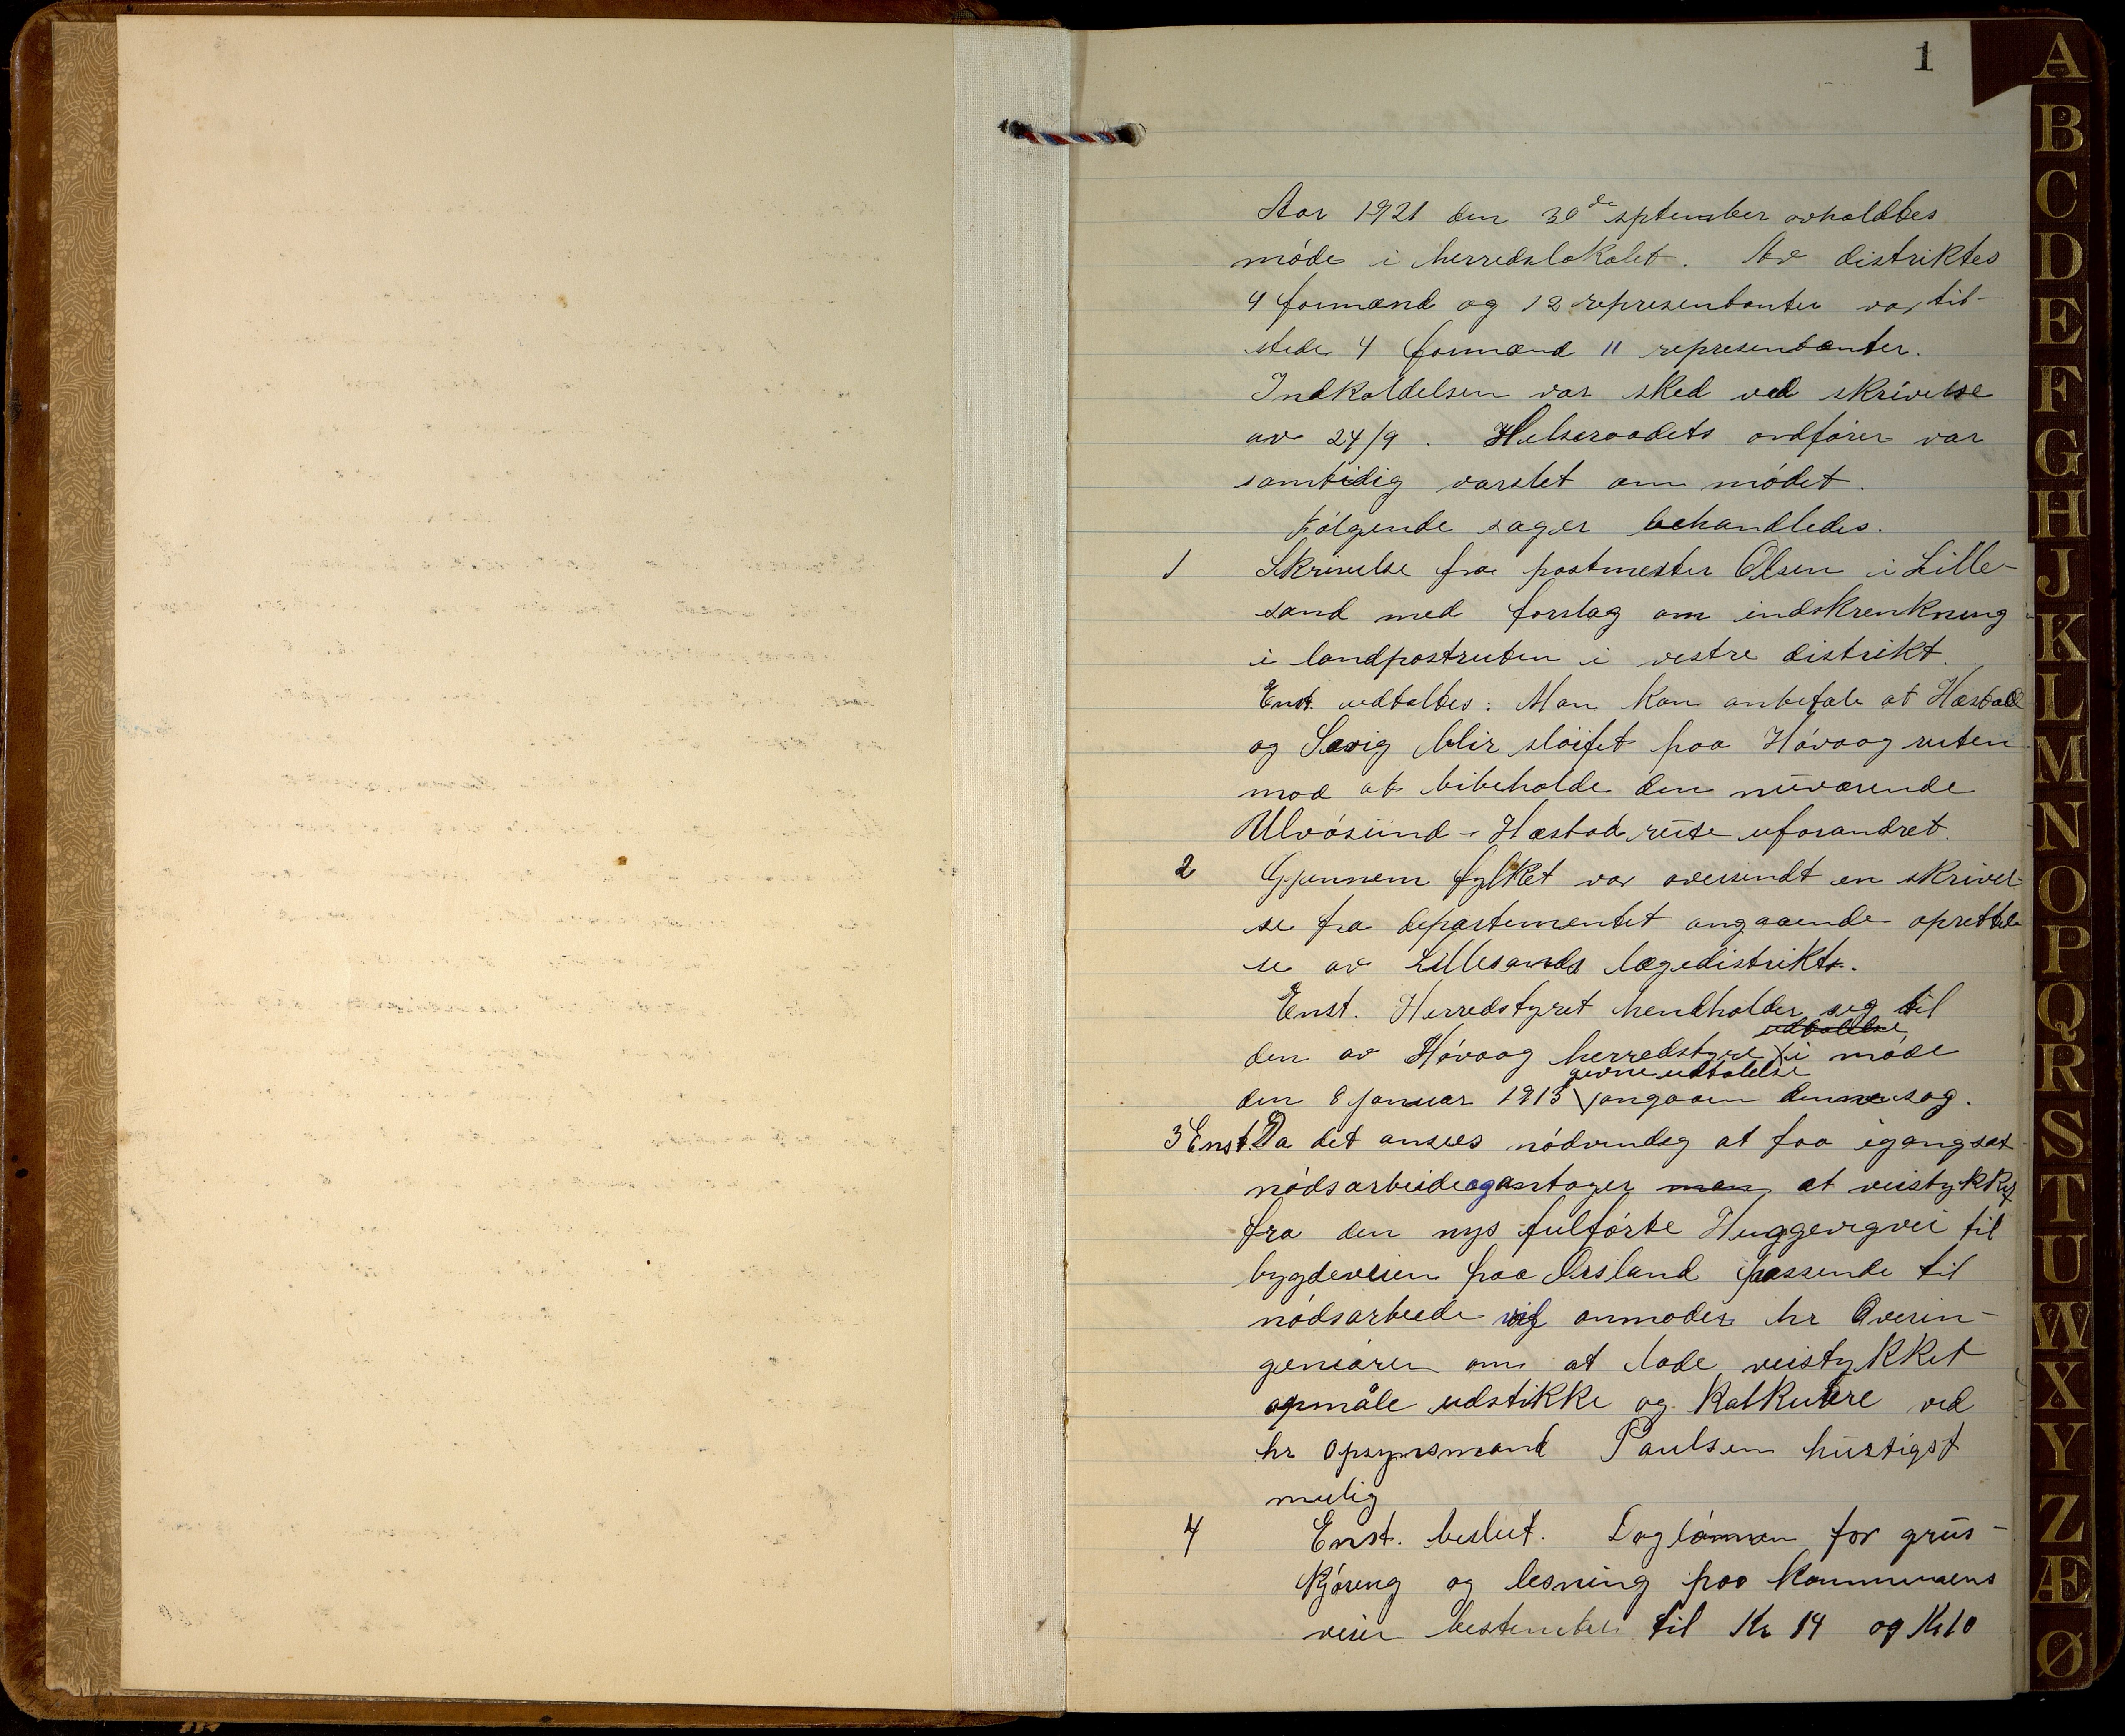 1
Aar 1921 den 30de sptember avholdtes
møde i herredslokalet. Av distriktes
4 formænd og 12 representanter var til-
stede 4 formænd 11 representanter.
Indkaldelsen var sked ved skrivelse
av 24/9. Helseraadets ordfører var
samtidig varslet om mødet.
Følgende sager behandledes.
1 Skrivelse fra postmester Olsen i Lille-
sand med forslag om indskrenkning
i landpostruten i vestre distrikt.
Enst. udtaltes: Man kan anbefale at Hæstad
og Sævig blir sløifet paa Høvaag ruten
mod at bibeholde den nuværende
Ulvøsund - Hæstad rute uforandret.
2 Gjennem fylket var oversendt en skrivel-
se fra departementet angaaende oprettel-
se av Lillesands lægedistrikt.
Enst. Herredstyret henholder seg til
udtalelse
den av Høvaag herredstyre i møde
givne udtalelse
den 8 januar 1913 angaaen denne sag.
3 Enst. Da det ansees nødvendig at faa igangsat
nødsarbeide og antager man at veistykket
fra den nys fulførte Huggevigvei til
bygdeveien paa Ørsland passende til
nødsarbeide vil anmodes hr Overin-
geniøren om at lade veistykket
opmåle udstikke og kalkulere ved
hr Opsynsmand Paulsen hurtigst
mulig
4 Enst. beslut. Daglønnen for grus-
kjøring og lesning paa kommunens
veier bestemtes til Kr 14 og Kr 10
A
B
C
D
E
F
G
H
J
K
L
M
N
O
P
Q
R
S
T
U
W
X
Y
Z
Æ
Ø